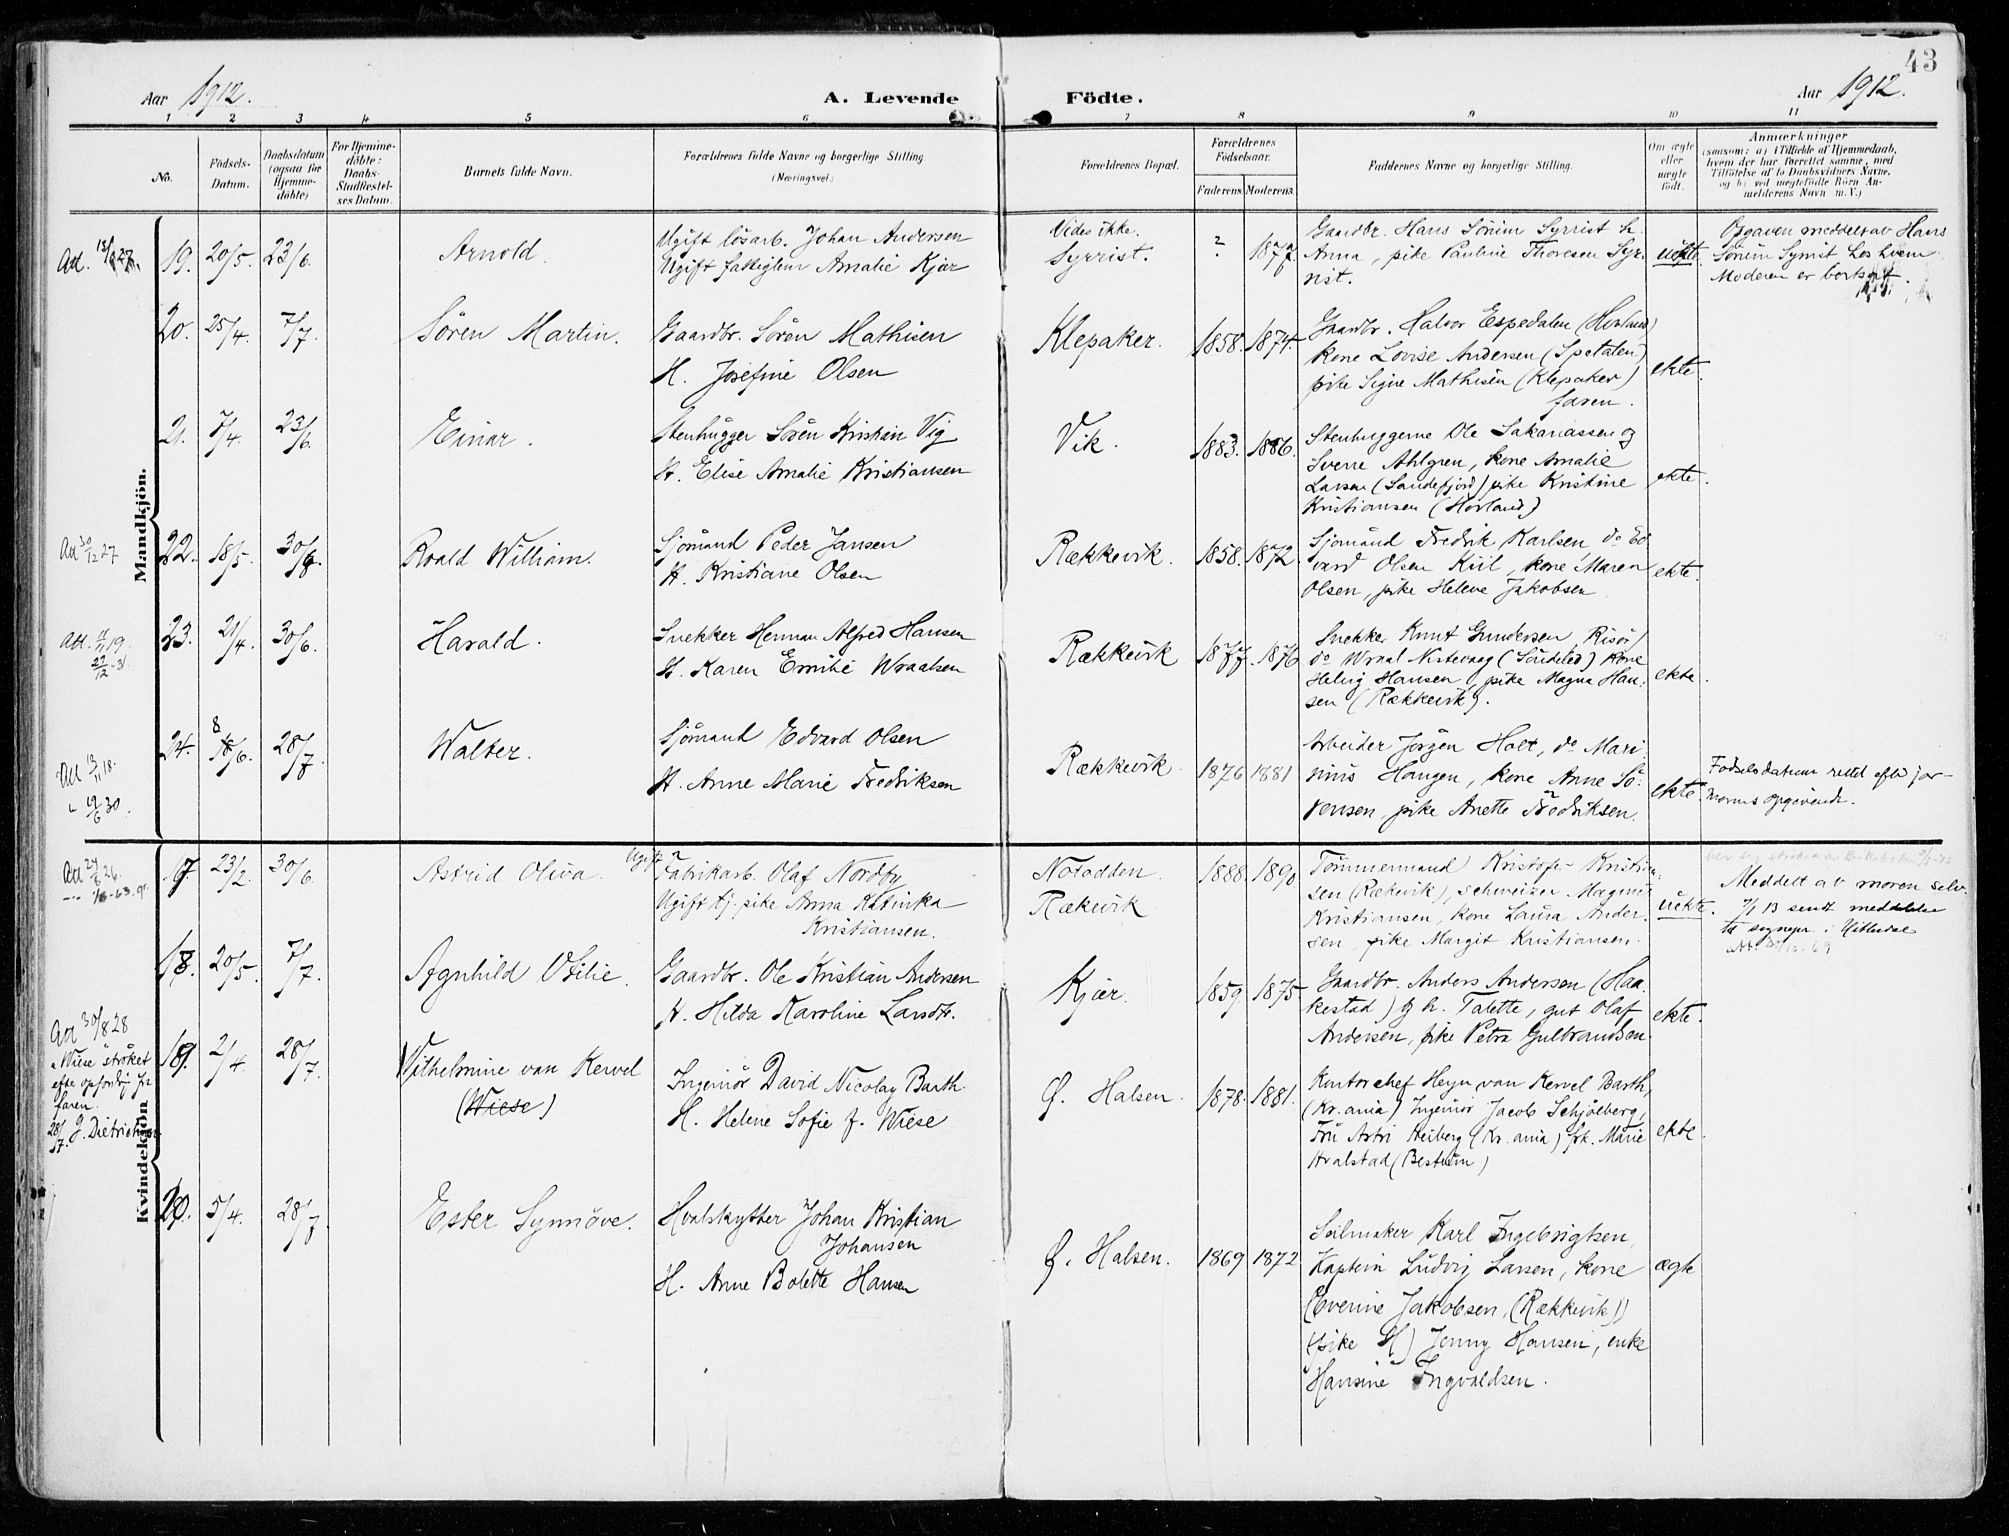 43
Aar 1912.
A. Levende Födte.
Aar 1912.
1 2 3 4 5 6 7 8 9 10 11
No.
Födsels-
Datum.
Daabsdatum
(ogsaa for
Hjemme-
döbte)
For Hjemme-
döbte:
Daabs-
Stadfæstel-
ses Datum.
Barnets fulde Navn.
Forældrenes fulde Navne og borgerlige Stilling
(Næringsvei)
Forældrenes Bopæl.
Forældrenes
Födselsaar.
Faderens Moderens
Faddernes Navne og borgerlige Stilling.
Om ægte
eller
uægte
födt.
Anmærkninger
(saasom: a) i Tilfælde af Hjemmedaab,
hvem der har forrettet samme, med
Tilföielse af to Daabsvidners Navne,
og b) ved uægtefödte Börn An-
mælderens Navn m. V.)
Mandkjön.
19. 20/5. 23/6. Arnold.
Ugift lösarb. Johan Andersen
Ugift fattiglem Amalie Kjær
Vides ikke.
Syrrist.
? 1877
Gaardbr. Hans Sörim Syrrist h.
Anna, pike Pauline Thoresen Syr-
rist.
uekte.
Opgaven meddelt av Hans
Sörim Syrrist hos hvem
Moderen er bortsat.
20. 25/4. 7/7. Sören Martin.
Gaardbr. Sören Mathisen
H. Josefine Olsen
Klepaker. 1858. 1874.
Gaardbr. Halvor Espedalen (Hovland)
kone Lovise Andersen (Spetalen)
pike Signe Mathisen (Klepaker)
faren.
ekte.
21. 7/4. 23/6. Einar.
Stenhugger Sören Kristian Vig
H. Elise Amalie Kristiansen
Vik. 1883. 1886.
Stenhuggerne Ole Sakariassen og
Sverre Ahlgren, kone Amalie
Larsen (Sandefjord) pike Kristine
Kristiansen (Hovland)
ekte.
Att 30/12 27
22. 18/5. 30/6. Roald William.
Sjömand Peder Jansen
H. Kristiane Olsen
Rækkevik. 1858. 1872.
Sjömand Fredrik Karlsen, do Ed-
vard Olsen Kiil, kone Maren
Olsen, pike Helene Jakobsen
ekte.
Att. 11/11 19.
27/12-31.
23. 21/4. 30/6. Harald.
Snekker Herman Alfred Hansen
H. Karen Emilie Wraalsen
Rækkevik 1877. 1876
Snekker Knut Gundersen, Risör)
do Wraal Nistevaag (Söndeled) kone
Helvig Hansen, pike Magna Han-
sen (Rækkevik).
ekte.
Att 13/11 18.
" 19/6 30.
24. 8/6. 28/7 Walter.
Sjömand Edvard Olsen
H. Anne Marie Fredriksen
Rækkevik 1876 1881
Arbeider Jörgen Holt, do Mari-
nius Haugen, kone Anne Sö-
rensen, pike Anette Fredriksen.
ekte.
Födselsdatum rettet efter jor-
mors opgivende.
Kvindekjön
Att 24/8 26.
17. 23/2. 30/6. Astrid Oliva.
Ugift Fabrikarb. Olaf Nordby
Ugift tj. pike Anna Katinka
Kristiansen.
Notodden.
Rækevik
1888. 1890
Tömmermand Kristofer Kristian-
sen (Rækevik), schweizer Magnus
Kristiansen, kone Laura Ander-
sen, pike Margit Kristiansen.
uekte.
Meddelt av moren selv.
7/1 13 sendt meddelelse
til sognepr. i Hitterdal
18. 20/5. 7/7. Agnhild Otilie.
Gaardbr. Ole Kristian Andersen
H. Hilda Karoline Larsdtr.
Kjær. 1859. 1875.
Gaardbr. Anders Andersen (Haa-
kestad) og h. Talette, gut Olaf
Andersen, pike Petra Gulbrandsen.
ekte.
Att 30/8 28
"Wiese" strøket
efter opfordr. fr
faren.
28/ 17. J. Dietrichson
19. 2/4 28/7. Wilhelmine van Kervel
(Wiese)
Ingeniör David Nicolay Barth
H. Helene Sofie f. Wiese
Ø. Halsen. 1878. 1881.
Kontorchef Heyn van Kervel Barth,
(Kr.ania) Ingeniör Jacob Schjölberg,
Fru Astri Heiberg (Kr.ania) frk. Marie
Hvalstad (Bestum)
ekte.
20. 5/4. 28/7 Ester Synnöve.
Hvalskytter Johan Kristian
Johansen
H. Anne Bolette Hansen
Ø. Halsen. 1869 1872
Seilmaker Karl Ingebrigtsen,
Kaptein Ludvig Larsen, kone
(Everine Jakobsen, (Rækkevik))
(pike H) Jenny Hansen, enke
Hansine Ingvaldsen.
ægte